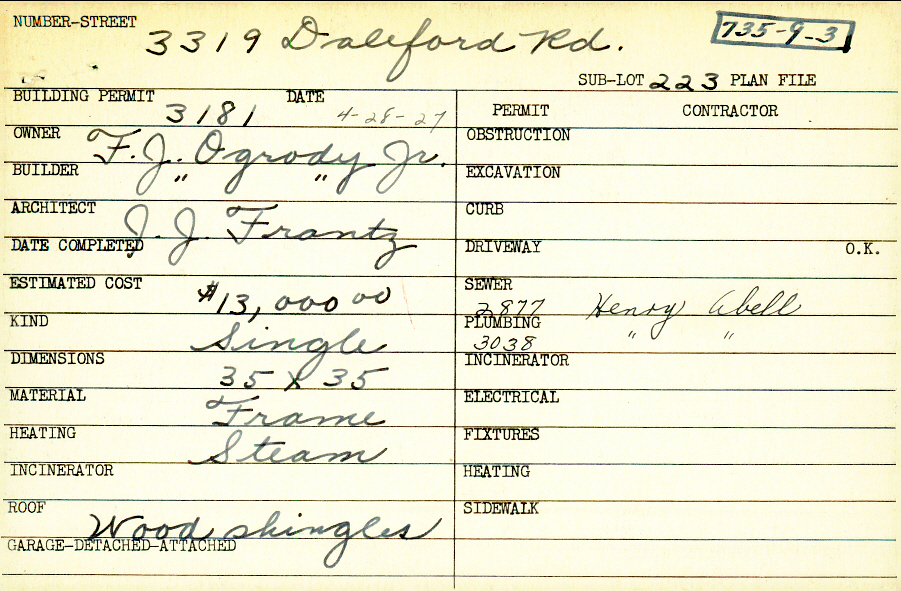 NUMBER-STREET 3319 Daleford Rd. 735-9-3
SUB-LOT 223 PLAN FILE
BUILDING PERMIT 3181 DATE 4-28-27
PERMIT CONTRACTOR
OWNER F. J. Ogrody Jr.
OBSTRUCTION
BUILDER " "
EXCAVATION
ARCHITECT J. J. Frantz
CURB
DATE COMPLETED
DRIVEWAY O.K.
ESTIMATED COST $13,000 00
SEWER 2877 Henry Abell
KIND Single
PLUMBING 3038 " "
DIMENSIONS 35 x 35
INCINERATOR
MATERIAL Frame
ELECTRICAL
HEATING Steam
FIXTURES
INCINERATOR
HEATING
ROOF Wood shingles
SIDEWALK
GARAGE-DETACHED-ATTACHED